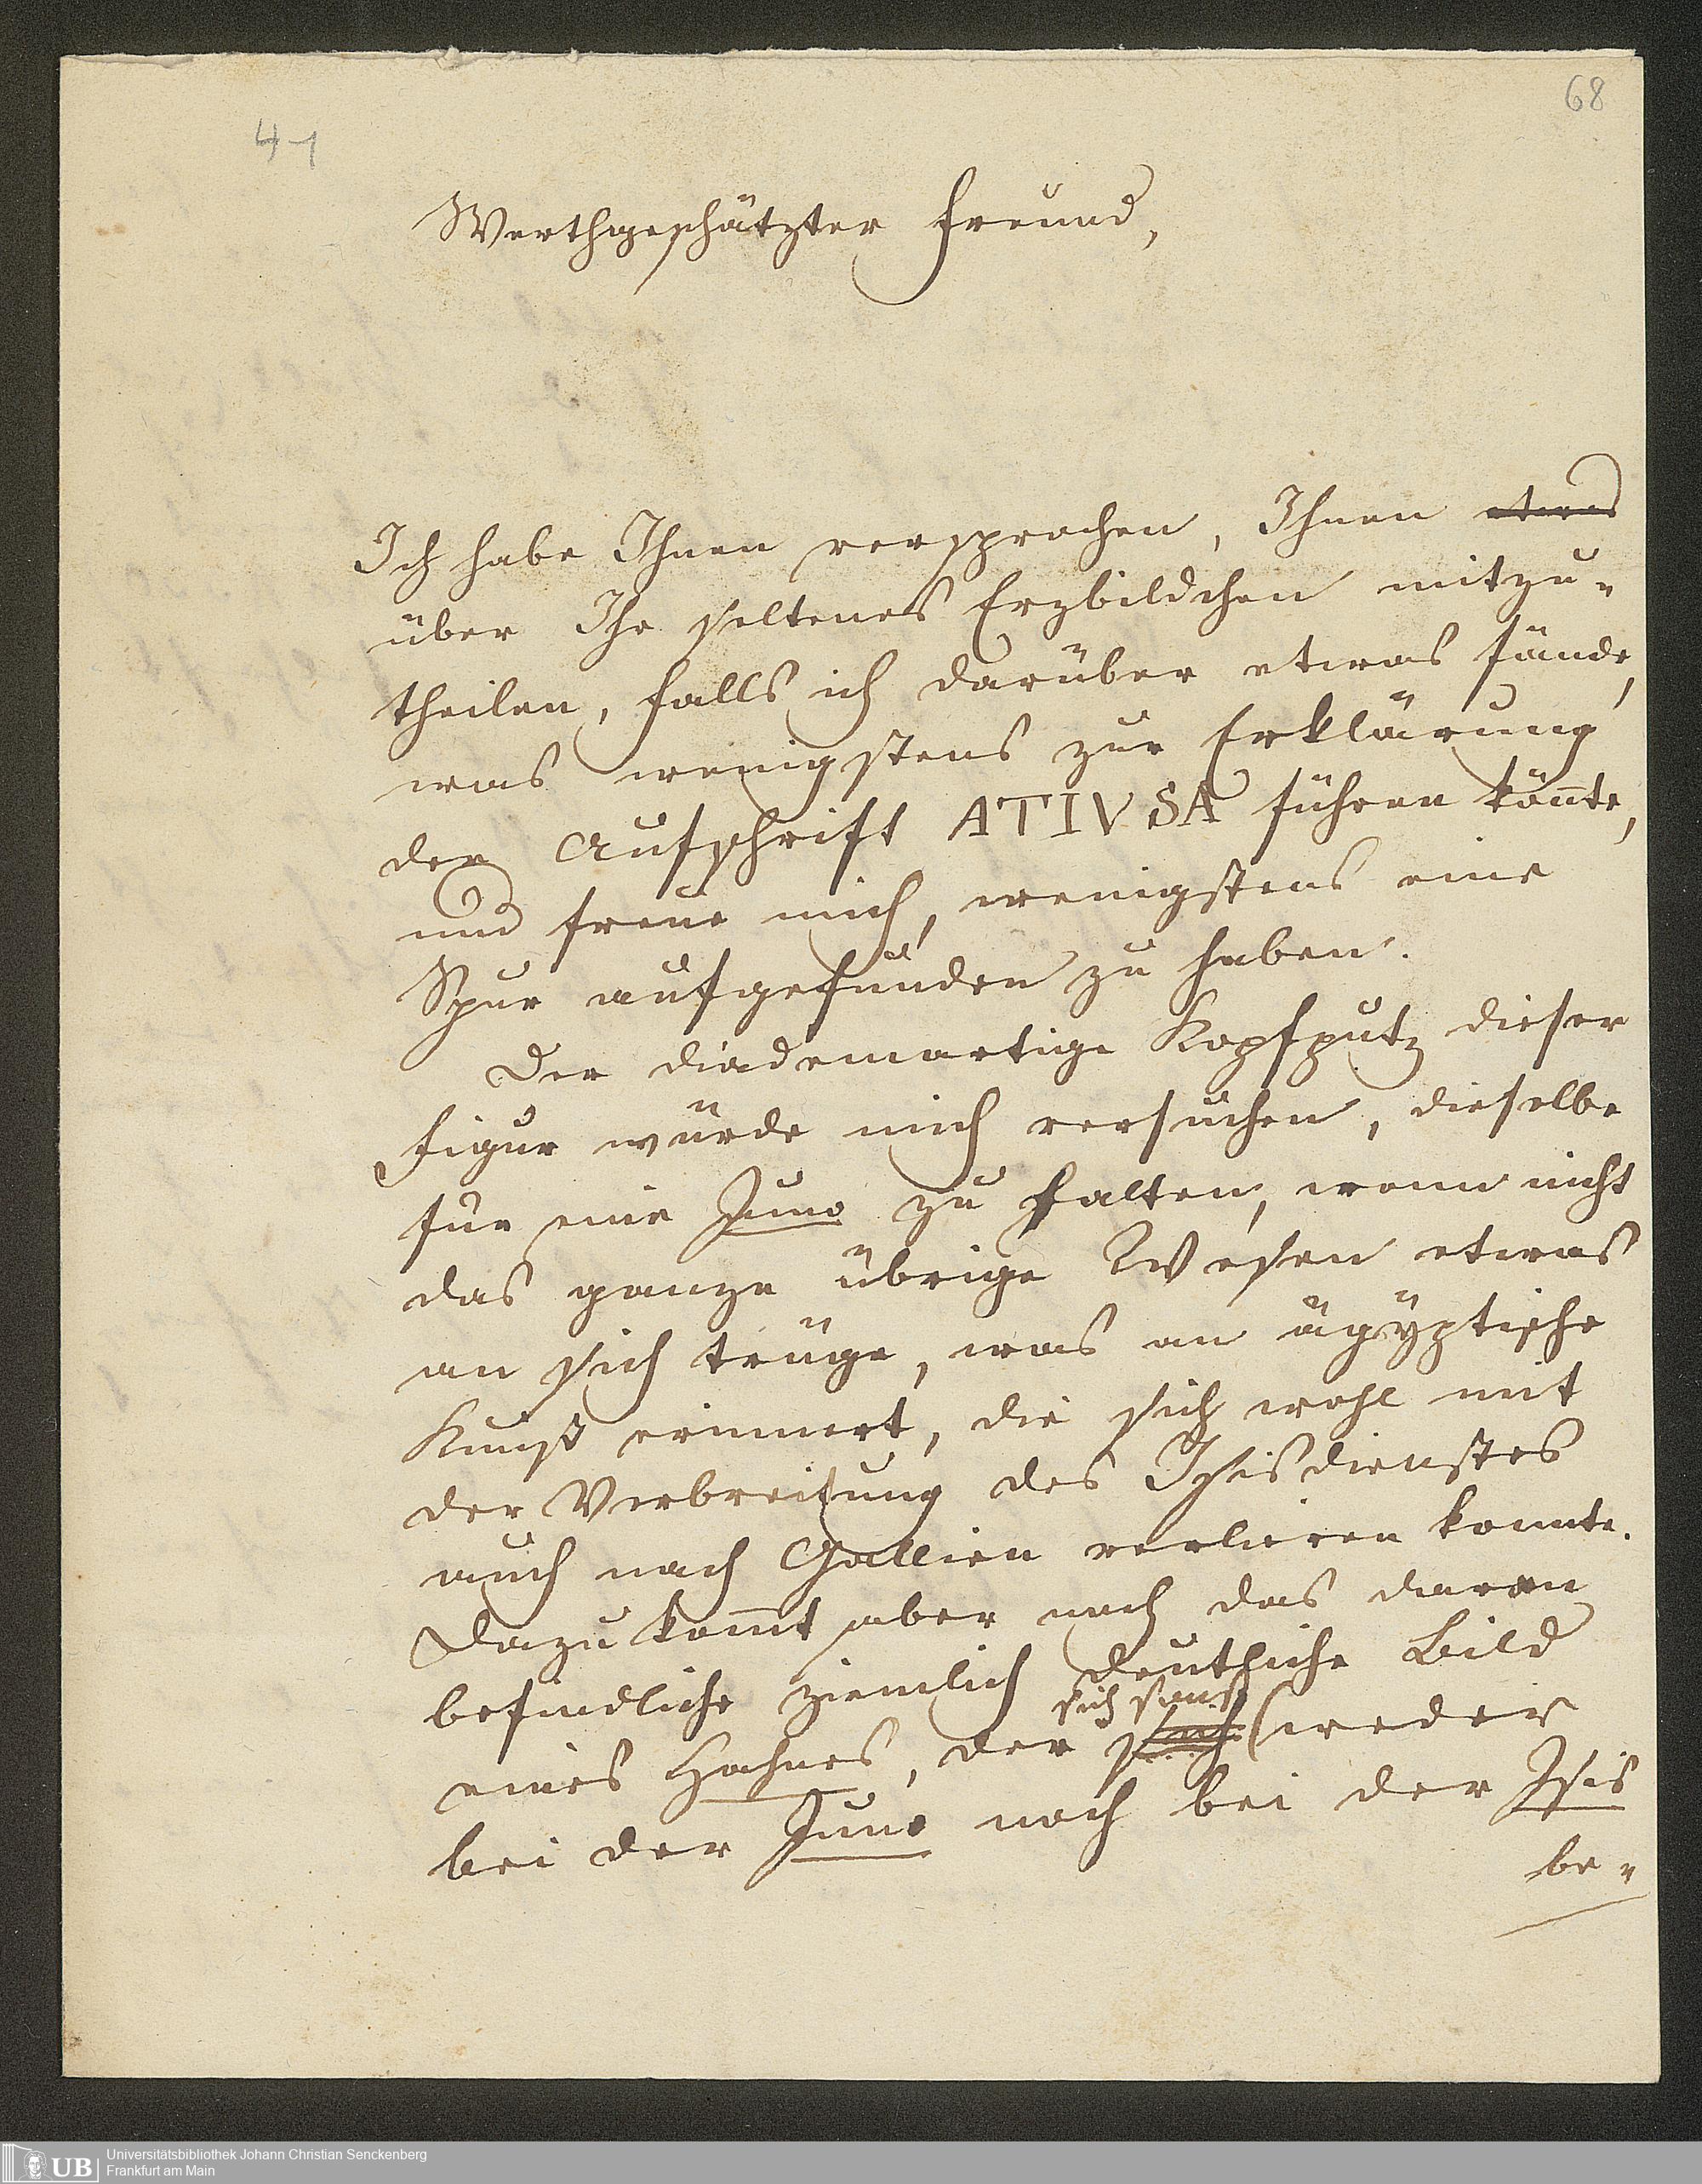 68
41
Werthgeschätzter Freund,
Ich habe Ihnen versprochen, Ihnen etwas
über Ihr seltenes Erzbildchen mitzu-
theilen, falls ich darüber etwas fände,
was wenigstens zur Erklärung
der Aufschrift ATIVSA führen könte,
und freue mich, wenigstens eine
Spur aufgefunden zu haben.
Der diademartige Kopfputz dieser
Figur würde mich versuchen, dieselbe
für eine Juno zu halten, wenn nicht
das ganze übrige Wesen etwas
an sich trüge, was an ägÿptische
Kunst erinnert, die sich wohl mit
der Verbreitung des Isisdienstes
auch nach Gallien verlieren konnte.
Dazu komt aber noch das daran
befindliche ziemlich deutliche Bild
sich sonst
eines Hahnes, der (weder
bei der Juno noch bei der Isis
be-
UB
Universitätsbibliothek Johann Christian Senckenberg
Frankfurt am Main